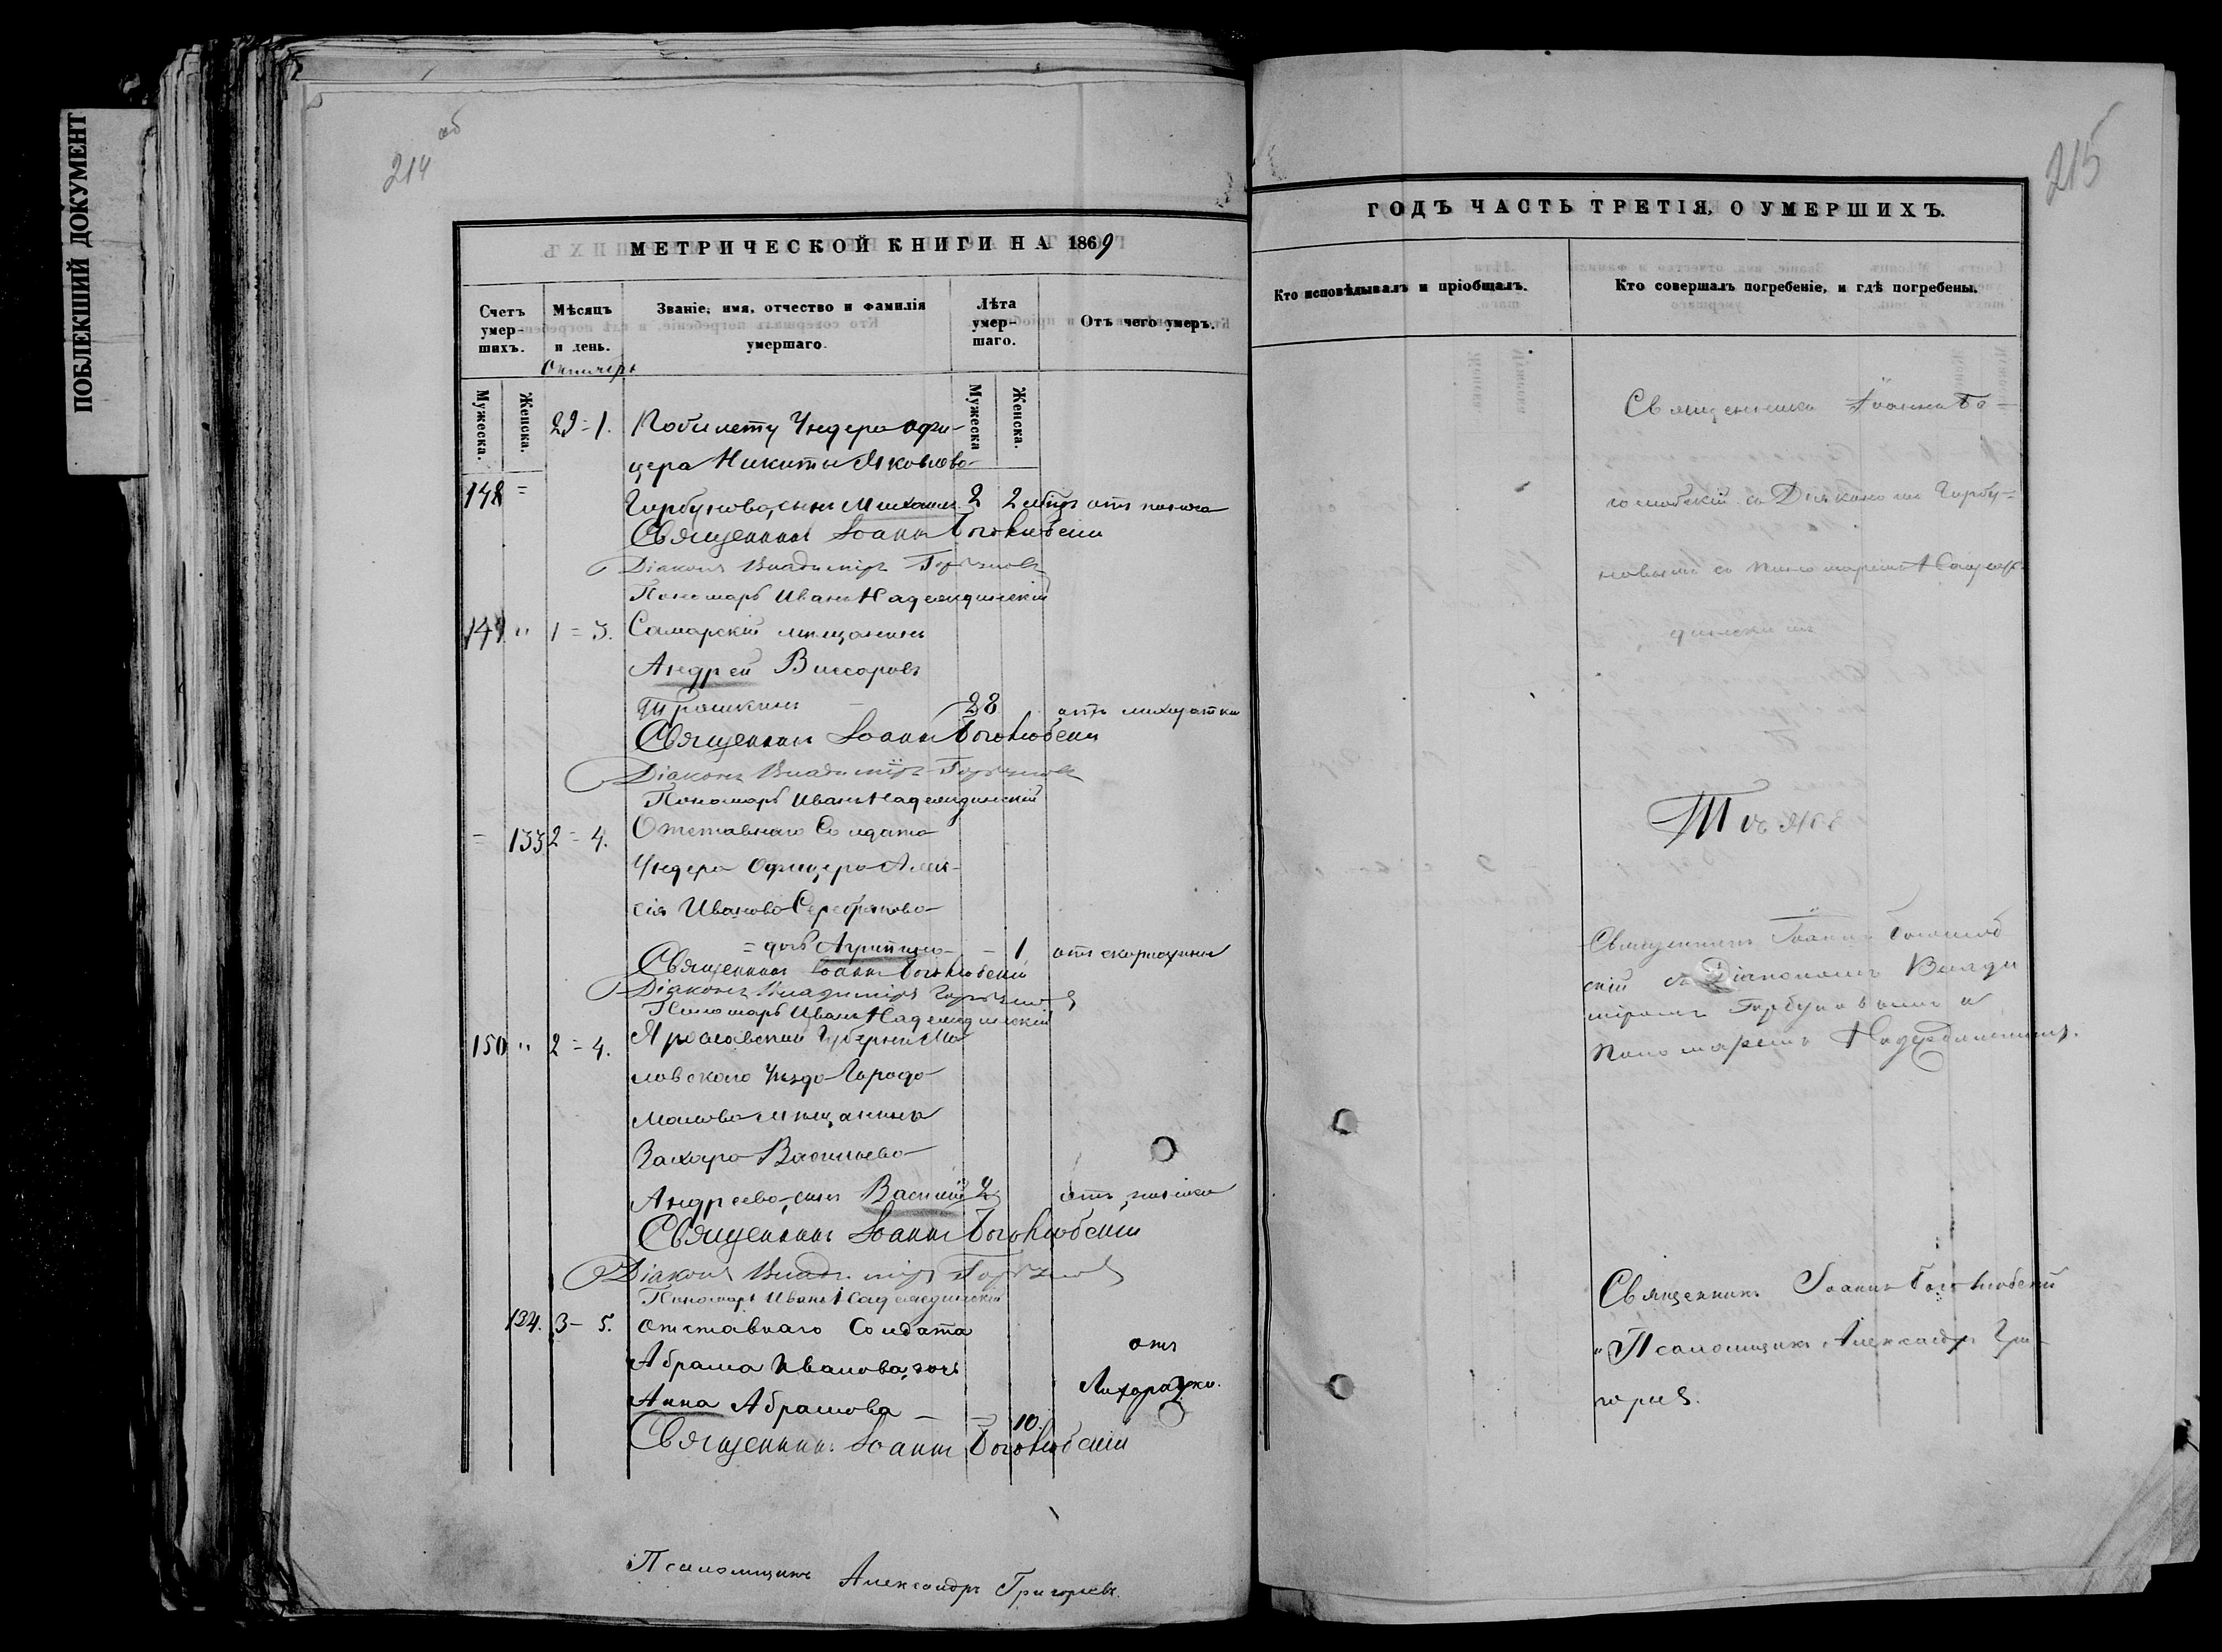 ПОБЛЕКШИЙ ДОКУМЕНТ
214 об
МЕТРИЧЕСКОЙ КНИГИ НА 1869
Счетъ умер-шихъ.
Мѣсяцъ и день.
Званіе, имя, отчество и фамилія умершаго.
Лѣта умер-шаго.
Отъ чего умеръ.
Октябрь
Мужеска.
Женска.
Мужеска
Женска.
29 = 1. По билету Ундера офи-
цера Никиты Яковлева
148 =
Горбунова, сынъ Михаилъ 2 отъ поноса
Священникъ Іоаннъ Боголюбскій
Діаконъ Владиміръ Горбуновъ
Пономарь Иванъ Надеждинскій
149 " 1 = 3. Самарскій мещанинъ
Андрей
Трошкинъ 28 отъ лихоратки
Священникъ Іоаннъ Боголюбскій
Діаконъ Владиміръ Горбуновъ
Пономарь Иванъ Надеждинскій
= 133 2 = 4. Отставнаго Солдата
Ундера Офицера Алек-
сія Иванова Серебрякова
= дочь Агрипина — 1
Священникъ Іоаннъ Боголюбскій
Діаконъ Владиміръ Горбуновъ
Пономарь Иванъ Надеждинскій
150 " 2 = 4. Ярославской Губерніи Мо
ловскаго Уѣзда Города
Мологи мещанина
Захара Васильева
Андреева, сынъ Василій 2 отъ поноса
Священникъ Іоаннъ Боголюбскій
Діаконъ Владиміръ Горбуновъ
Пономарь Иванъ Надеждинскій
134. 3 - 5. отставнаго Солдата
Абрама Иванова, дочь
отъ
Лихорадки.
Анна Абрамова — 10.
Священникъ Іоаннъ Боголюбскій
Псаломщикъ Александръ Григорьевъ.
215
ГОДЪ ЧАСТЬ ТРЕТІЯ, О УМЕРШИХЪ.
Кто исповѣдывалъ и пріобщалъ.
Кто совершалъ погребеніе, и гдѣ погребены.
Священникъ Іоаннъ Бо=
голюбскій съ Діакономъ Горбу=
новымъ съ пономаремъ Надеж
динскимъ
Тѣ же
Священникъ Іоаннъ Боголюб
скій съ Діакономъ Влади
міромъ Горбуновымъ и
пономаремъ Надеждинскимъ.
Священникъ Іоаннъ Боголюбскій
"Псаломщикъ Александръ Гри-
горьевъ.